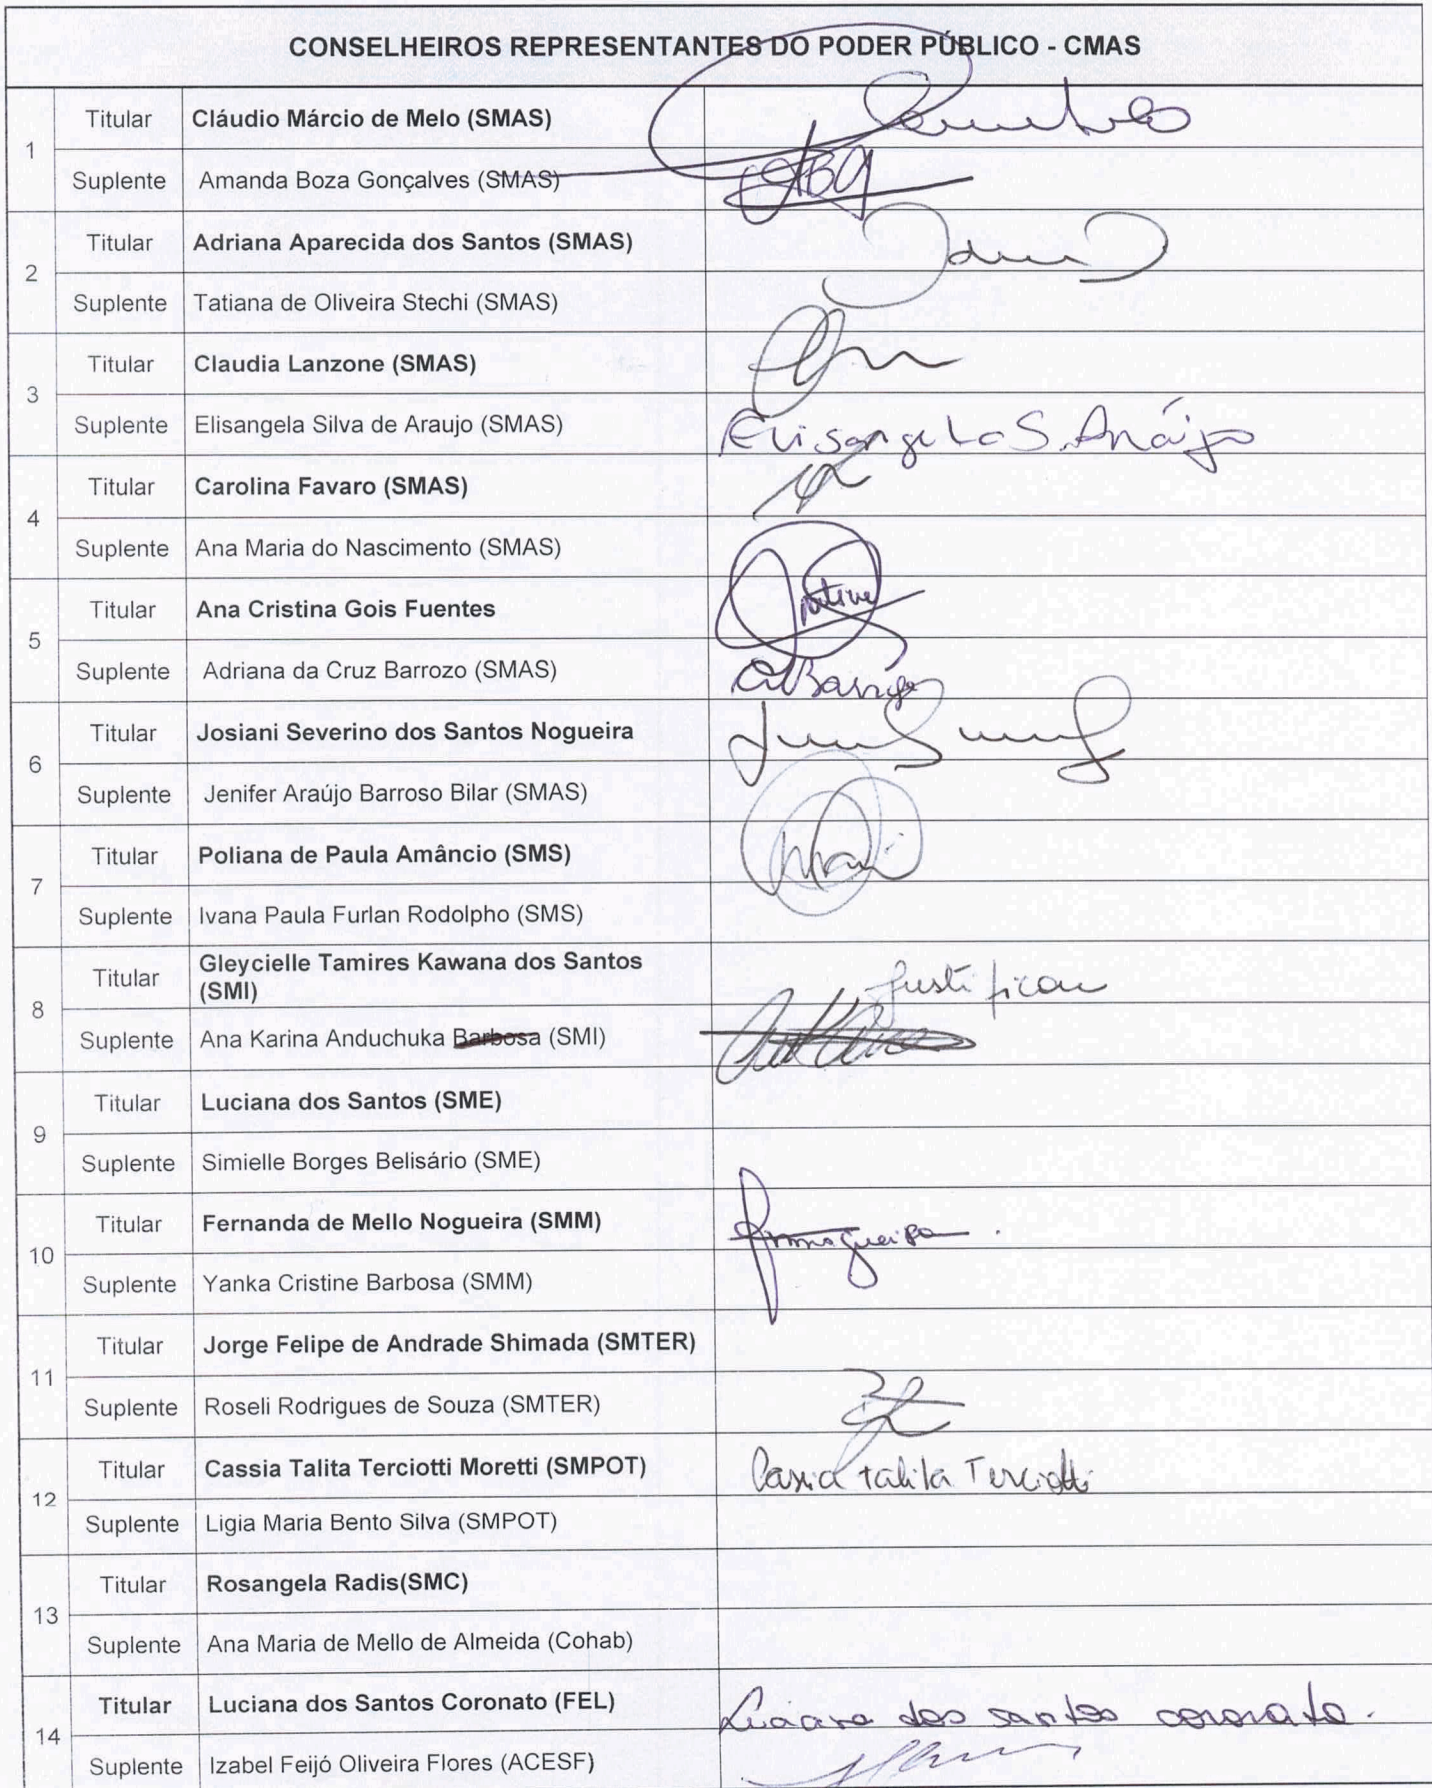 CONSELHEIROS REPRESENTANTES DO PODER PÚBLICO - CMAS
1
Titular Cláudio Márcio de Melo (SMAS)
Suplente Amanda Boza Gonçalves (SMAS) ABG
2
Titular Adriana Aparecida dos Santos (SMAS)
Suplente Tatiana de Oliveira Stechi (SMAS)
3
Titular Claudia Lanzone (SMAS)
Suplente Elisangela Silva de Araujo (SMAS) Elisangela S. Araújo
4
Titular Carolina Favaro (SMAS)
Suplente Ana Maria do Nascimento (SMAS)
5
Titular Ana Cristina Gois Fuentes
Suplente Adriana da Cruz Barrozo (SMAS)
6
Titular Josiani Severino dos Santos Nogueira
Suplente Jenifer Araújo Barroso Bilar (SMAS)
7
Titular Poliana de Paula Amâncio (SMS)
Suplente Ivana Paula Furlan Rodolpho (SMS)
8
Titular Gleycielle Tamires Kawana dos Santos
(SMI) Justificou
Suplente Ana Karina Anduchuka Barbosa (SMI)
9
Titular Luciana dos Santos (SME)
Suplente Simielle Borges Belisário (SME)
10
Titular Fernanda de Mello Nogueira (SMM) fmnogueira
Suplente Yanka Cristine Barbosa (SMM)
11
Titular Jorge Felipe de Andrade Shimada (SMTER)
Suplente Roseli Rodrigues de Souza (SMTER)
12
Titular Cassia Talita Terciotti Moretti (SMPOT) Cassia Talita Terciotti
Suplente Ligia Maria Bento Silva (SMPOT)
13
Titular Rosangela Radis(SMC)
Suplente Ana Maria de Mello de Almeida (Cohab)
14
Titular Luciana dos Santos Coronato (FEL) Luciana dos santos coronato.
Suplente Izabel Feijó Oliveira Flores (ACESF)